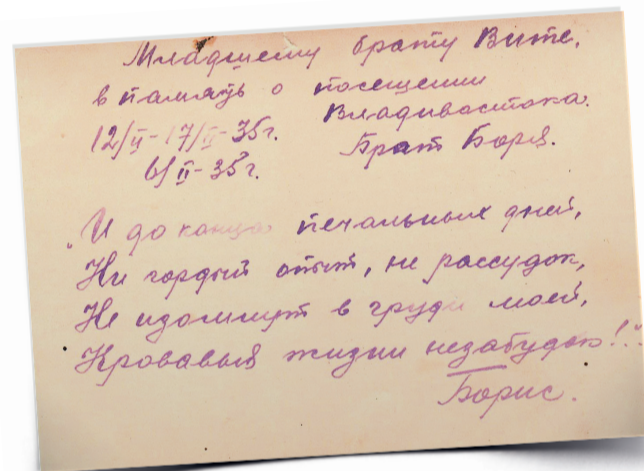 Младшему брату Вите,
в память о посещении
Владивостока.
12/II-17/II-35г.
Брат Боря.
6/II-35г.
„И до конца печальных дней,
Ни гордый опыт, не рассудок,
Не изомнут в груди моей,
Кровавый жизни незабудок!.."
Борис.